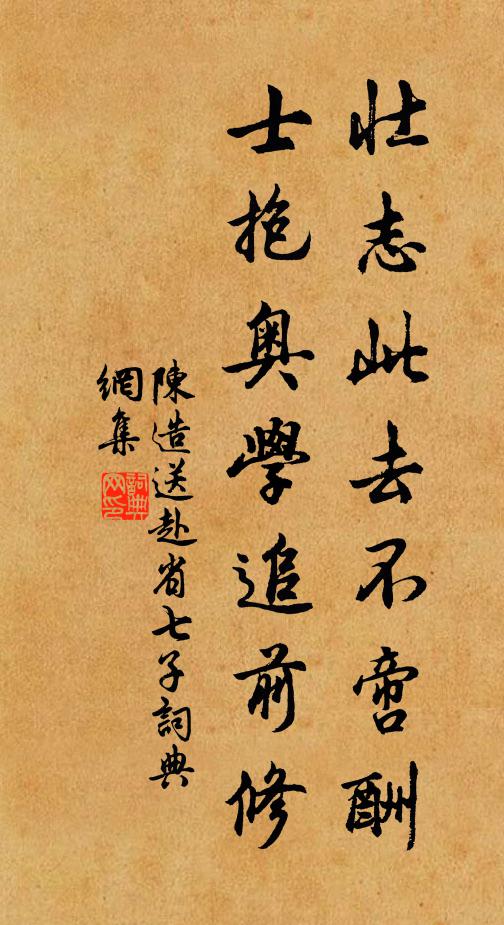 壯志此去不啻酬
士抱奧學追前修
陳造送赴省七子詞典
網集
詞典
网印